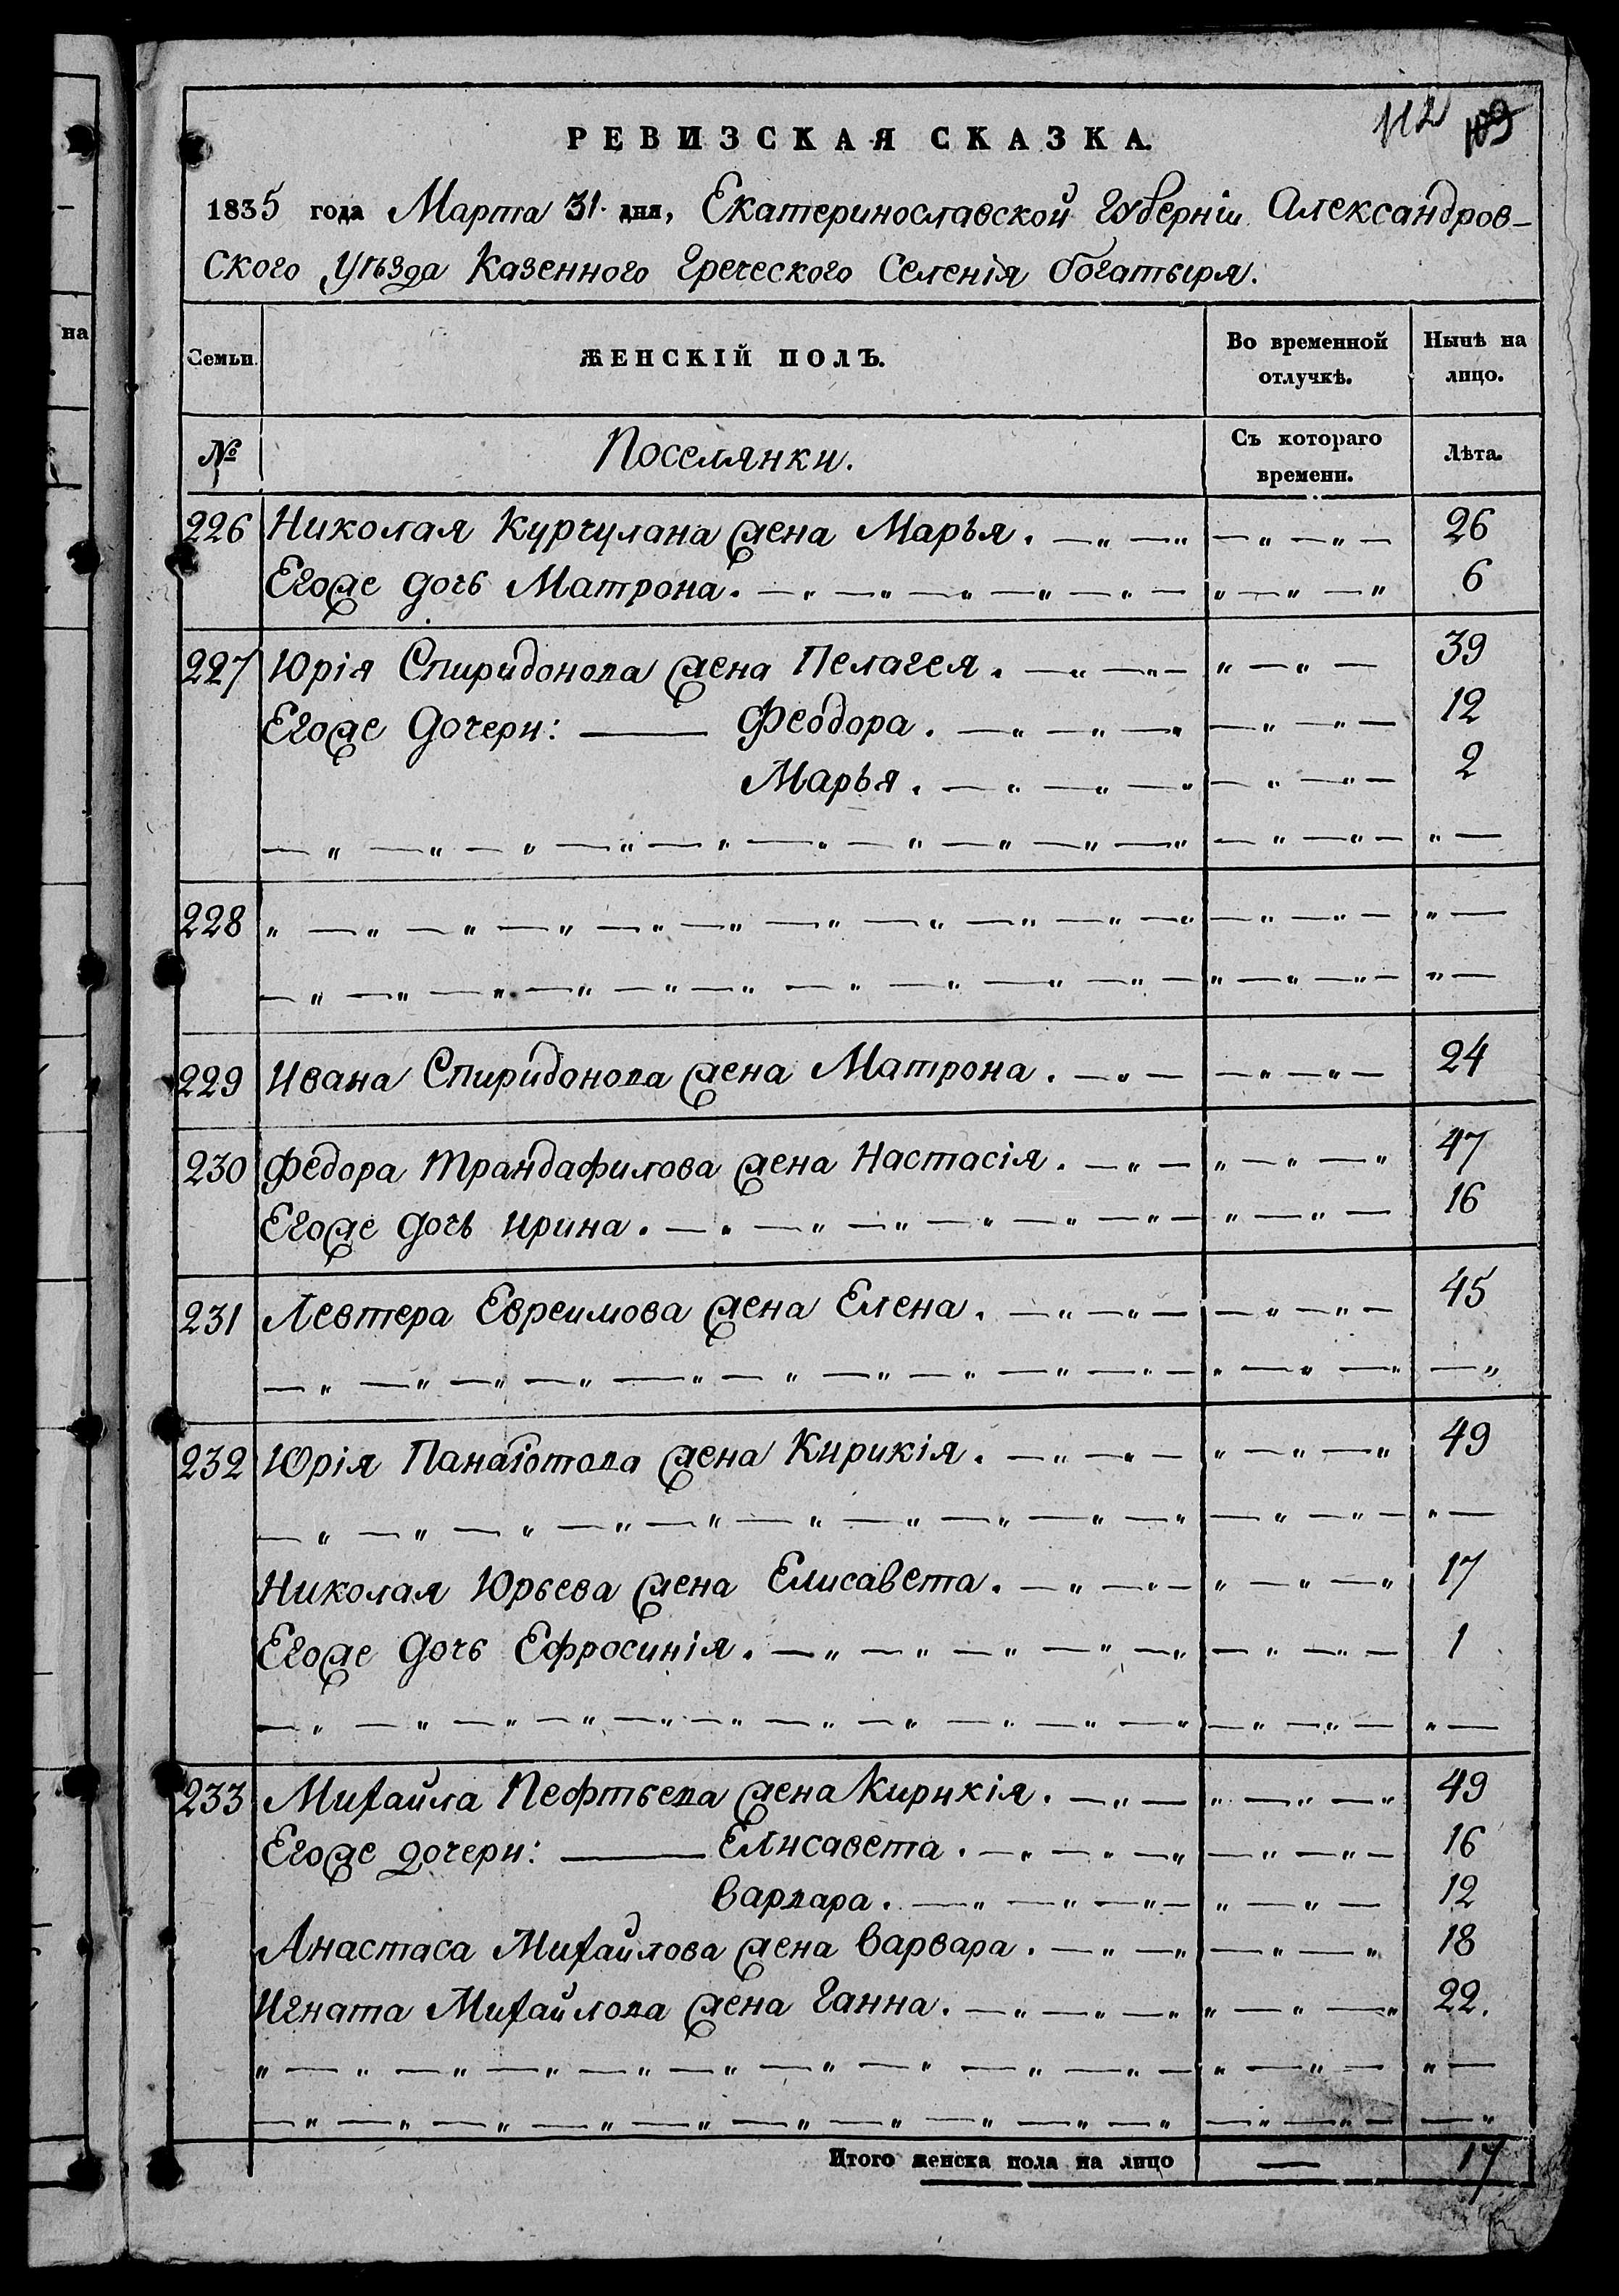 112 109
РЕВИЗСКАЯ СКАЗКА.
1835 года Марта 31. дня, Екатеринославской Губерніи Александров-
ского уѣзда Казенного Греческого Селенія Богатыря.
на
Семьи. ЖЕНСКІЙ ПОЛЪ. Во временной отлучкѣ. Нынѣ на лицо.
№ Поселянки. Съ котораго времени. Лѣта.
226 Николая Курчулана жена Марья. — „ — „ — „ — „ — 26
Егоже дочь Матрона. — „ — „ — „ — „ — „ — „ — „ — „ 6
227 Юрія Спиридонова жена Пелагея. — „ — „ — „ — „ — 39
Егоже дочери: — Феодора. — „ — „ — „ — „ — „ — 12
Марья. — „ — „ — „ — „ — „ — 2
— „ — „ — „ — „ — „ — „ — „ — „ — „ — „ — „ — „ — „ —
228 „ — „ — „ — „ — „ — „ — „ — „ — „ — „ — „ — „ — „ — „ —
— „ — „ — „ — „ — „ — „ — „ — „ — „ — „ — „ — „ — „ — „ —
229 Ивана Спиридонова жена Матрона. — „ — — „ — „ — 24
230 Федора Трандафилова жена Настасія. — „ — „ — „ — „ 47
Егоже дочь Ирина. — „ — „ — „ — „ — „ — „ — „ — „ — 16
231 Левтера Евреимова жена Елена. — „ — „ — — „ — „ — 45
— „ — „ — „ — „ — „ — „ — „ — „ — „ — „ — „ — „ — „ — „
232 Юрія Панаіотова жена Кирикія. — „ — „ — „ — „ — „ 49
— „ — „ — „ — „ — „ — „ — „ — „ — „ — „ — „ — „ — „ —
Николая Юрьева жена Елисавета. — „ — „ — „ — „ — „ 17
Егоже дочь Ефросинія. — „ — „ — „ — „ — „ — „ — „ — 1
— „ — „ — „ — „ — „ — „ — „ — „ — „ — „ — „ — „ — „ —
233 Михайла Пефтьева жена Кирикія. — „ — „ — „ — „ 49
Егоже дочери: — Елисавета. — „ — „ — „ — „ — „ — 16
Варвара. — „ — „ — „ — „ — „ — 12
Анастаса Михайлова жена Варвара. — „ — „ — „ — „ 18
Игната Михайлова жена Ганна. — „ — „ — „ „ — „ — „ 22.
„ — „ — „ — „ — „ — „ — „ — „ — „ — „ — „ — „ — „ —
— „ — „ — „ — „ — „ — „ — „ — „ — „ — „ — „ — „ — „
Итого женска пола на лицо — 17